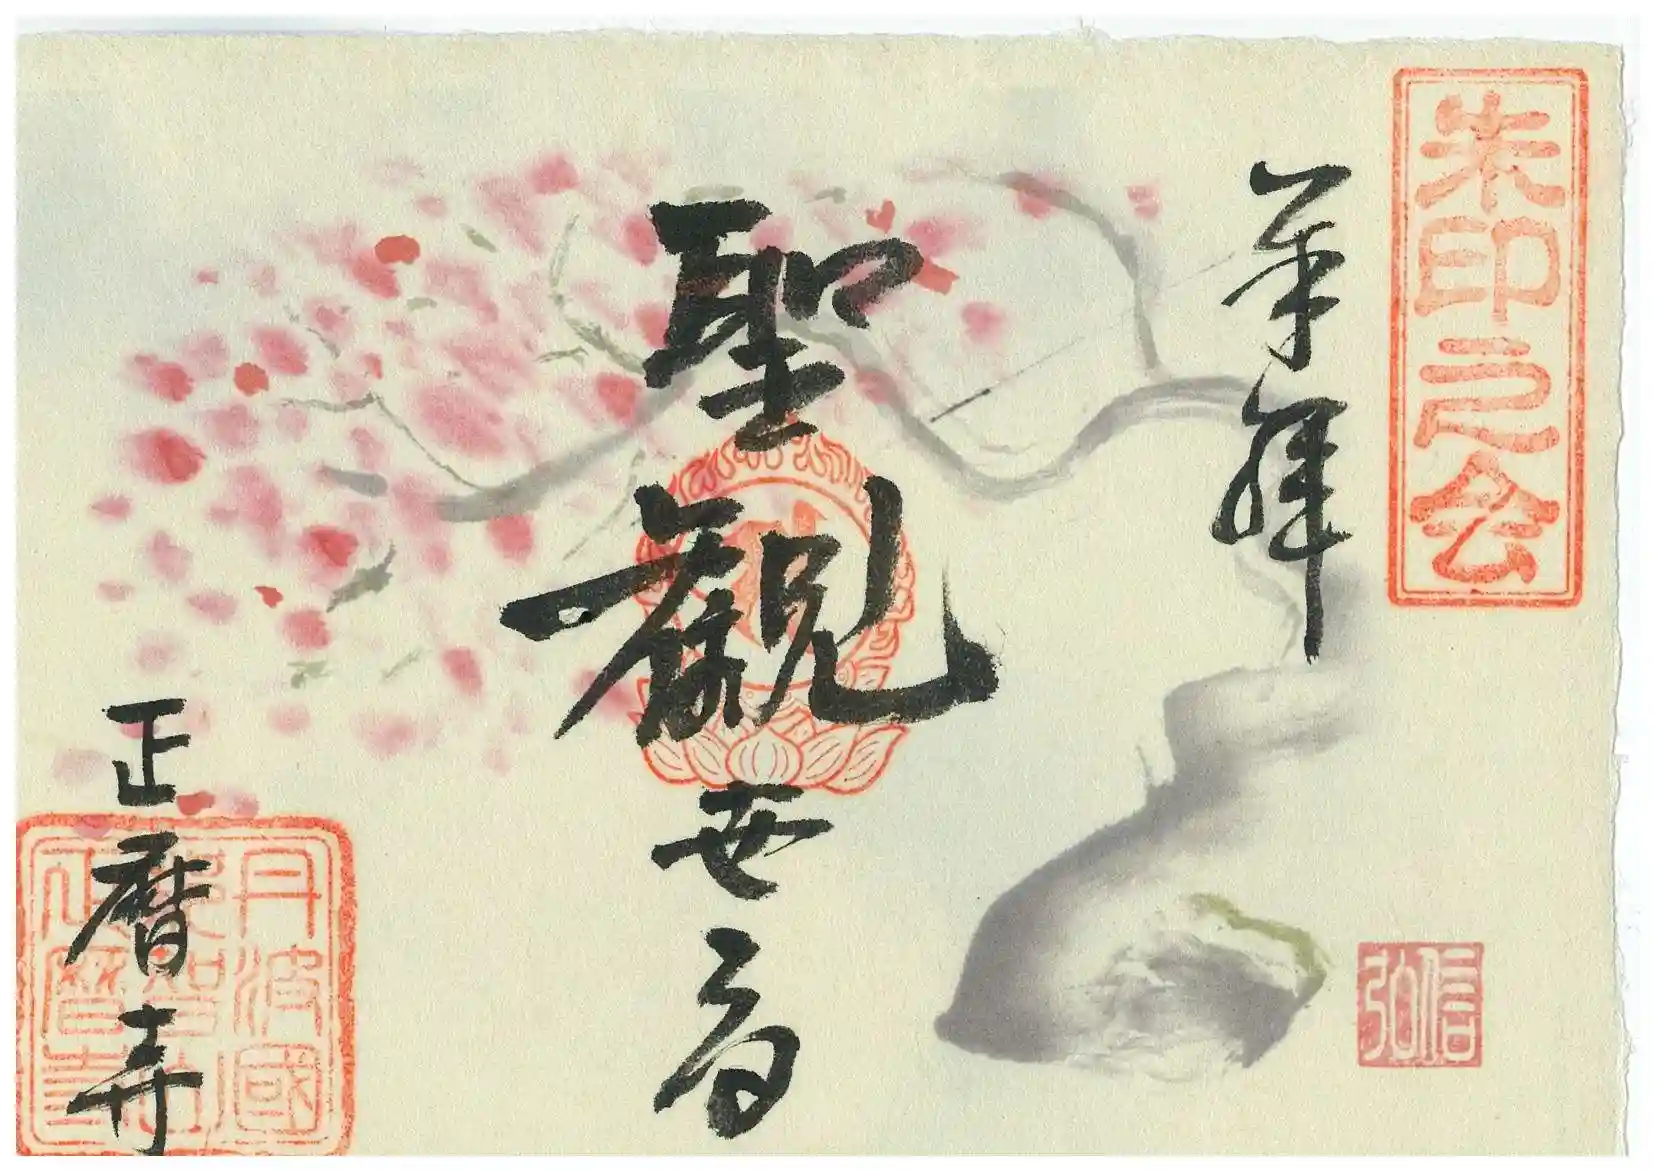 朱印之会
奉拝
信弘
聖観世音
正暦寺
丹波國
正暦寺